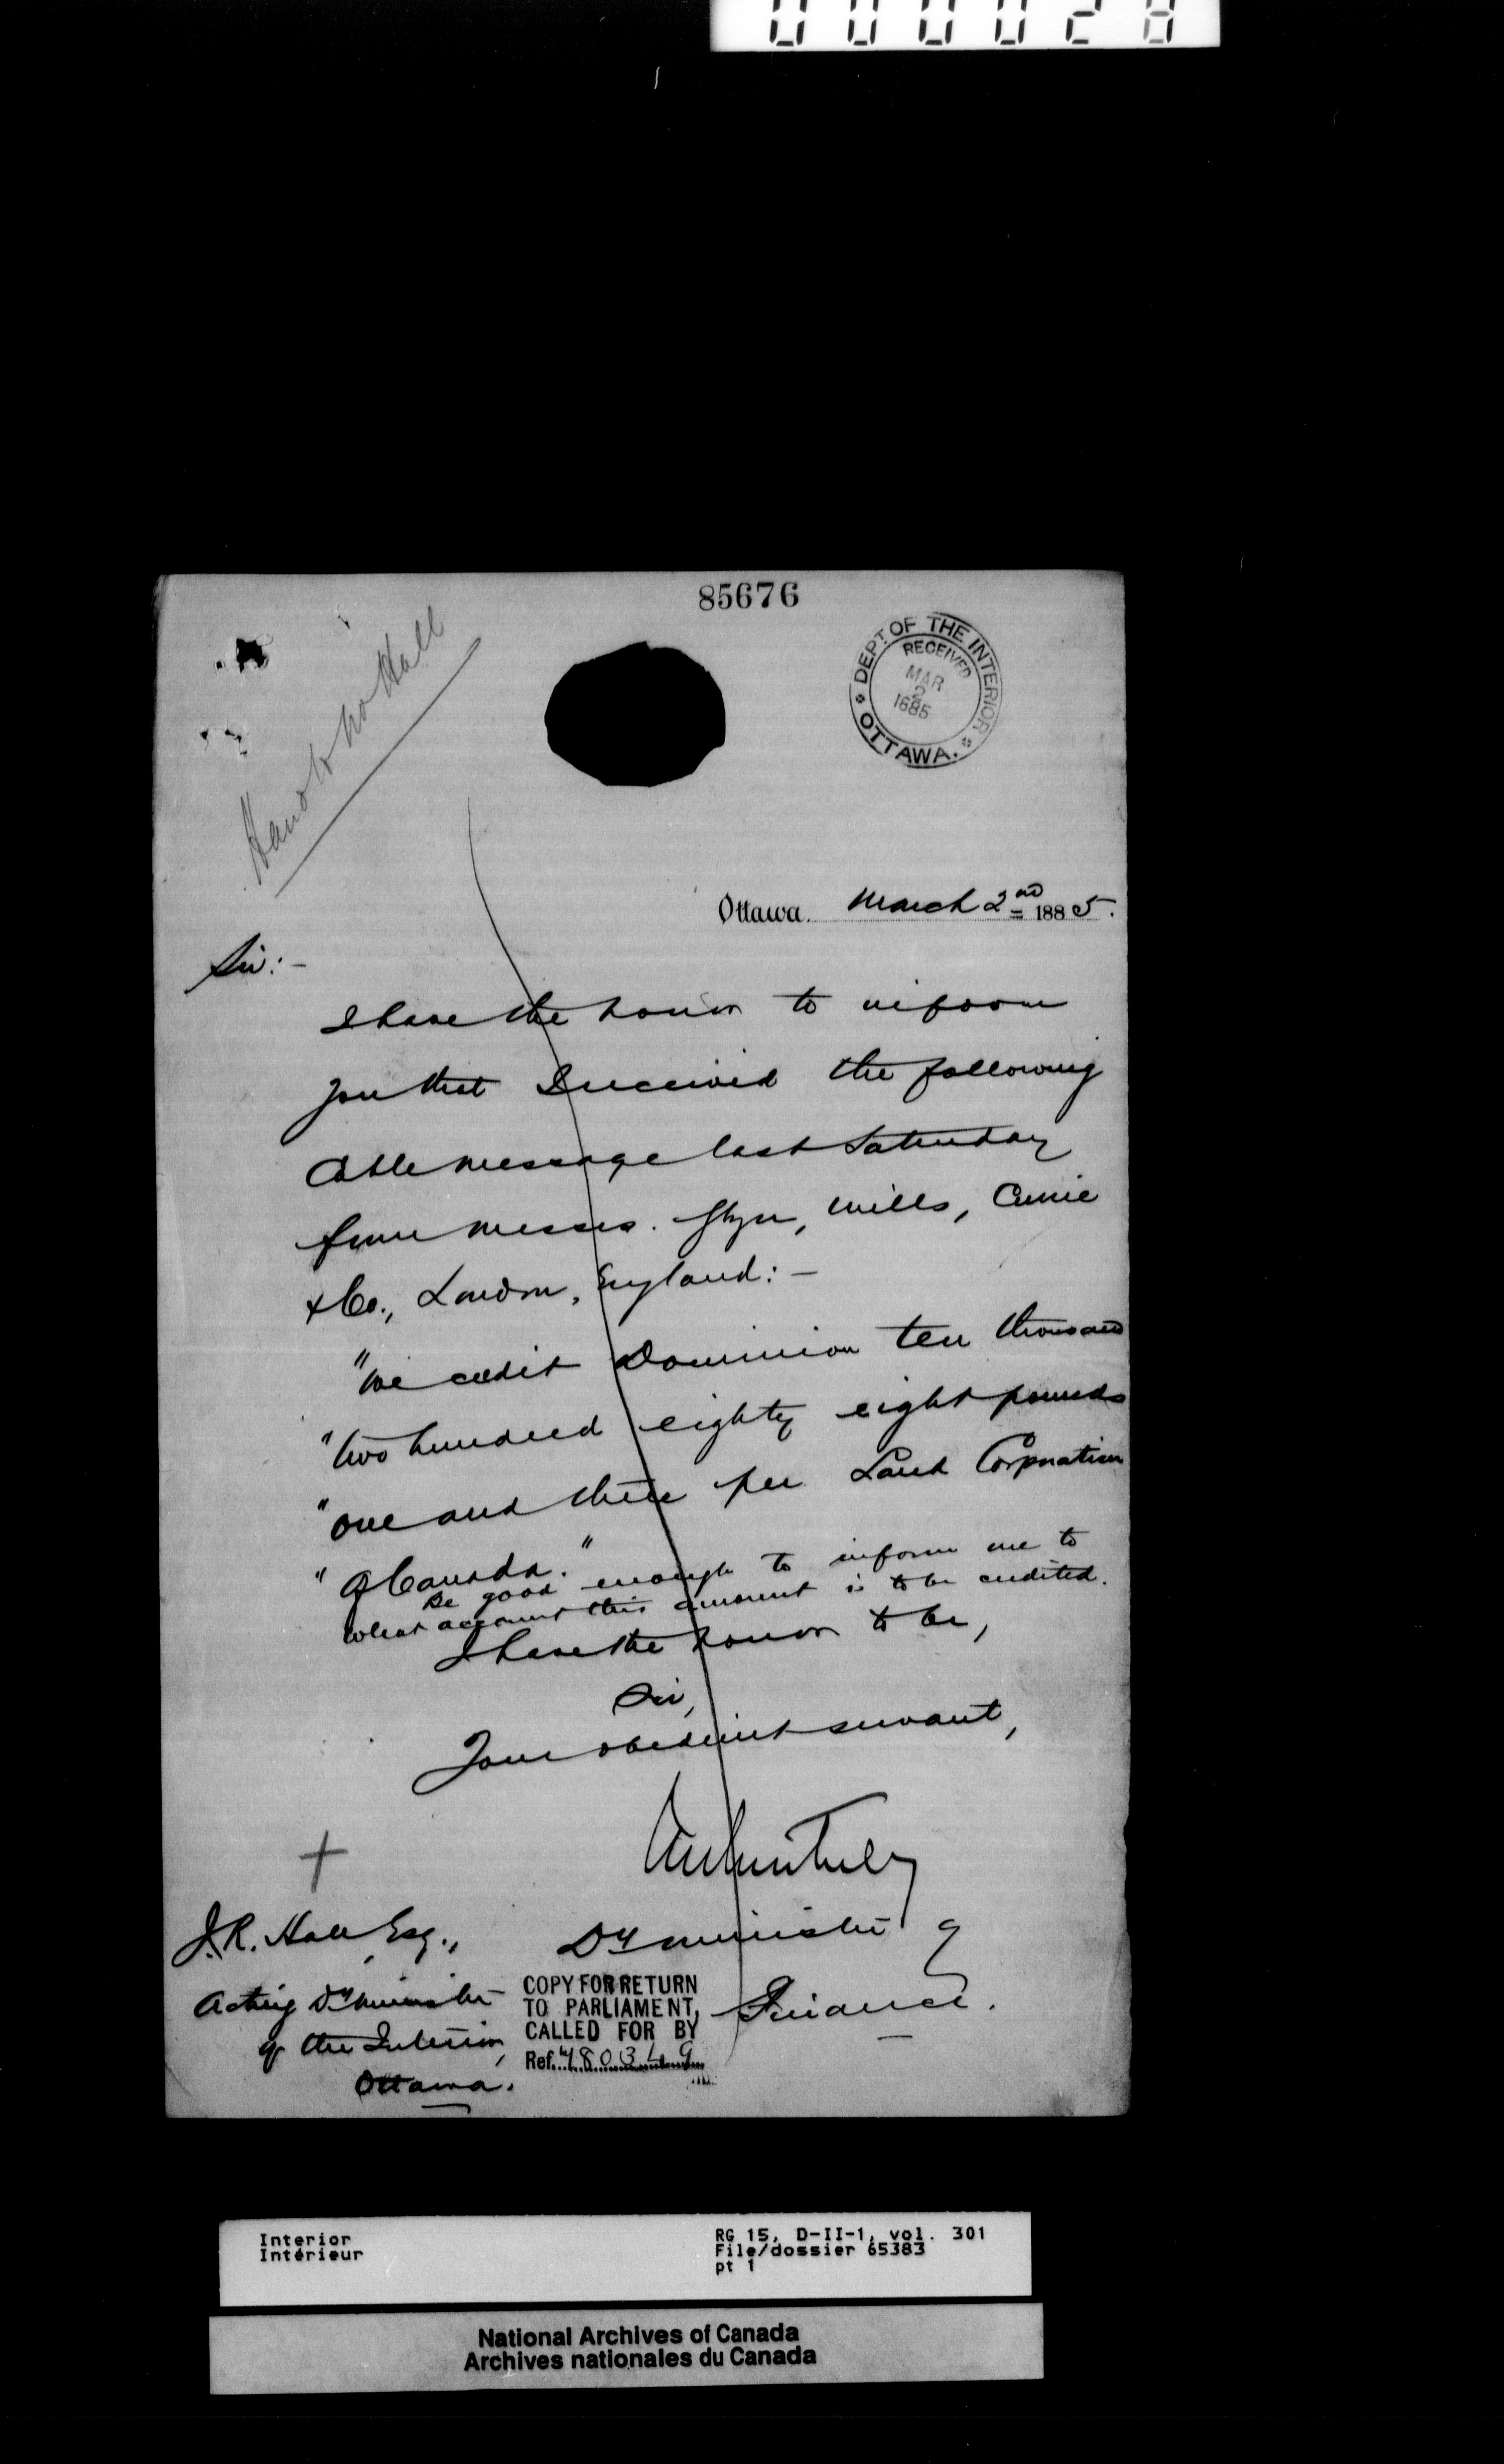 000028
85676
Hand to Mr Hall
DEPT OF THE INTERIOR
RECEIVED
MAR
2
1885
OTTAWA.
Ottawa. March 2nd 1885.
Sir:-
I have the honor to inform
you that I received the following
Cable message last Saturday
from Messrs. Glyn, Mills, Currie
& Co., London, England:-
"We credit Dominion ten thousand
"two hundred eighty eight pounds
"one and three per Land Corporation
"of Canada."
Be good enough to inform me to
what account this amount is to be credited.
I have the honor to be,
Sir,
Your obedient servant,
Dy Minister of
Finance.
J.R. Hall Esq.,
Acting Dy Minister
of the Interior,
Ottawa.
COPY FOR RETURN
TO PARLIAMENT,
CALLED FOR BY
Ref.
Interior
Intérieur
RG 15, D-II-1, vol. 301
File/dossier 65383
pt 1
National Archives of Canada
Archives nationales du Canada